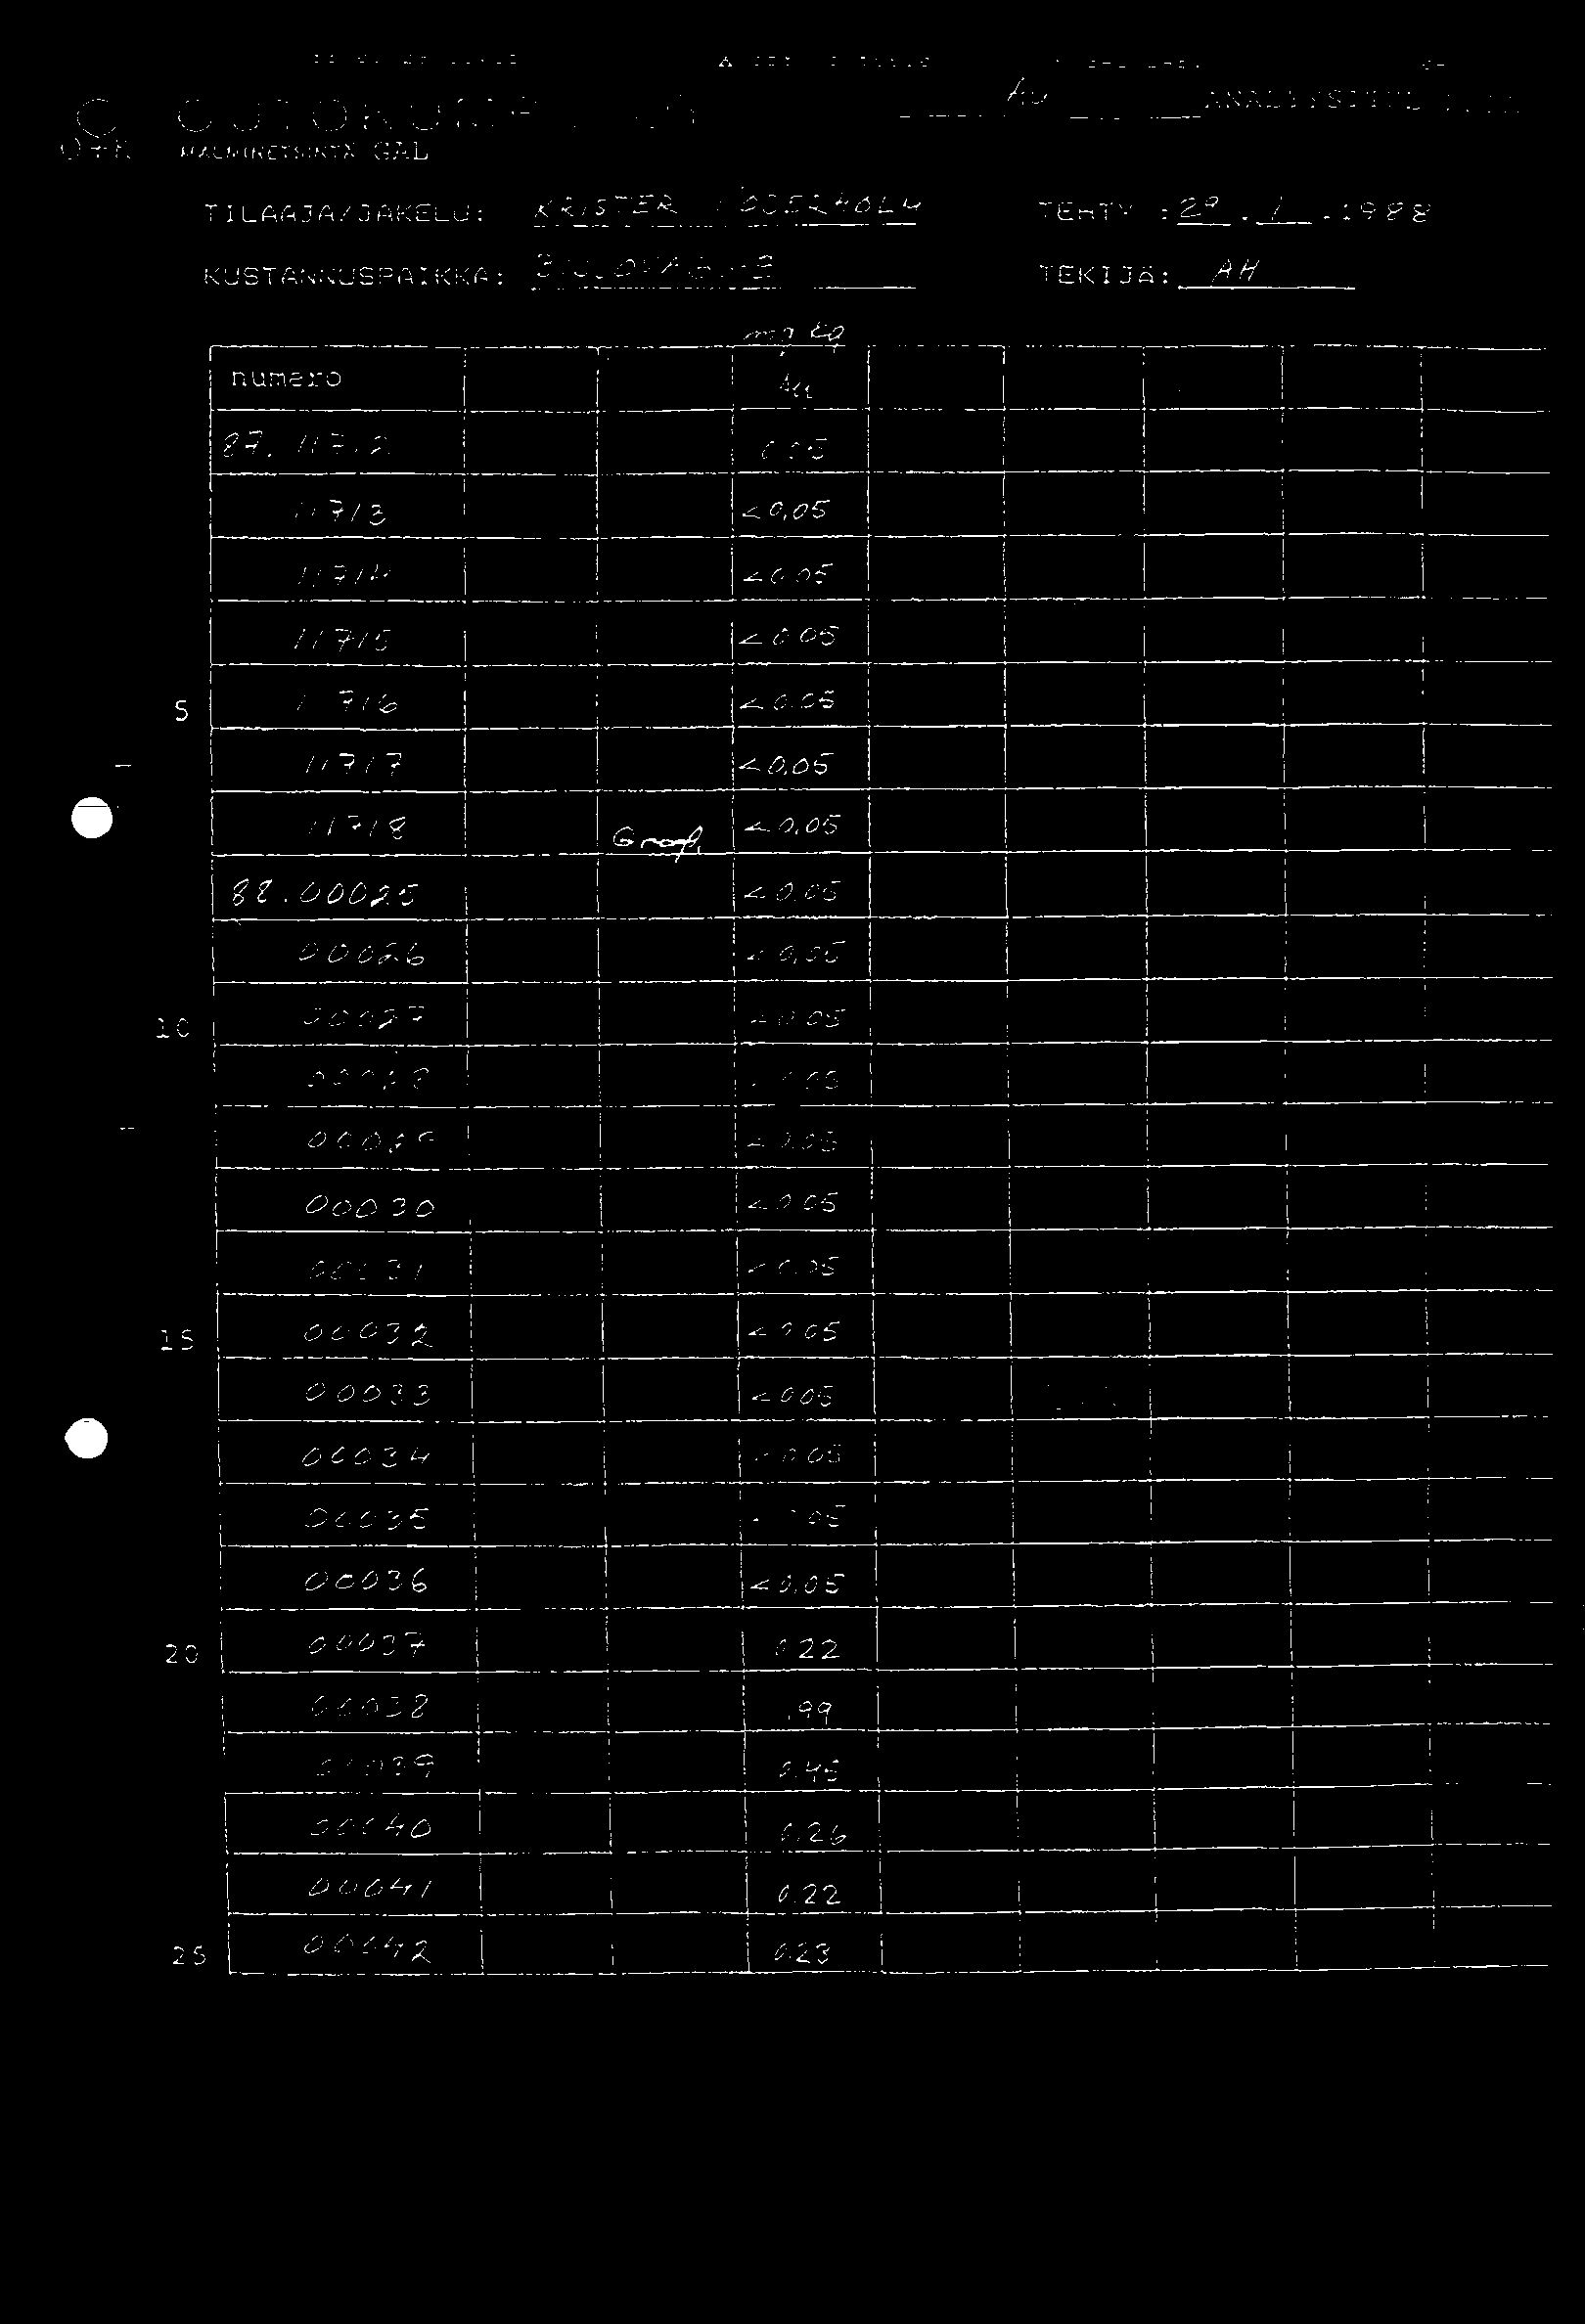 OUTOKUMPU
MALMINETSINTÄ GAL
Au ANALYYSITULOKSIA
TILAAJA/JAKELU: KRISTER SÖDERHOLM TEHTY :29.1.1988
KUSTANNUSPAIKKA: TEKIJÄ: AH
mg/kg
numero Au
87. 11712 0.05
11713 <0,05
11714 <0.05
11715 <0.05
5 11716 <0.05
11717 <0,05
11718 <0,05
88.00025 <0.05
00026 <0,05
10 00027 <0.05
00028 0.05
00029 <0.05
00030 <0.05
00031 <0.05
15 00032 <0.05
00033 <0.05
00034 <0.05
00035 <0.05
00036 <0,05
20 00037 0.22
00038 .99
00039 0.45
00040 0.26
00041 0.22
25 00042 0.23